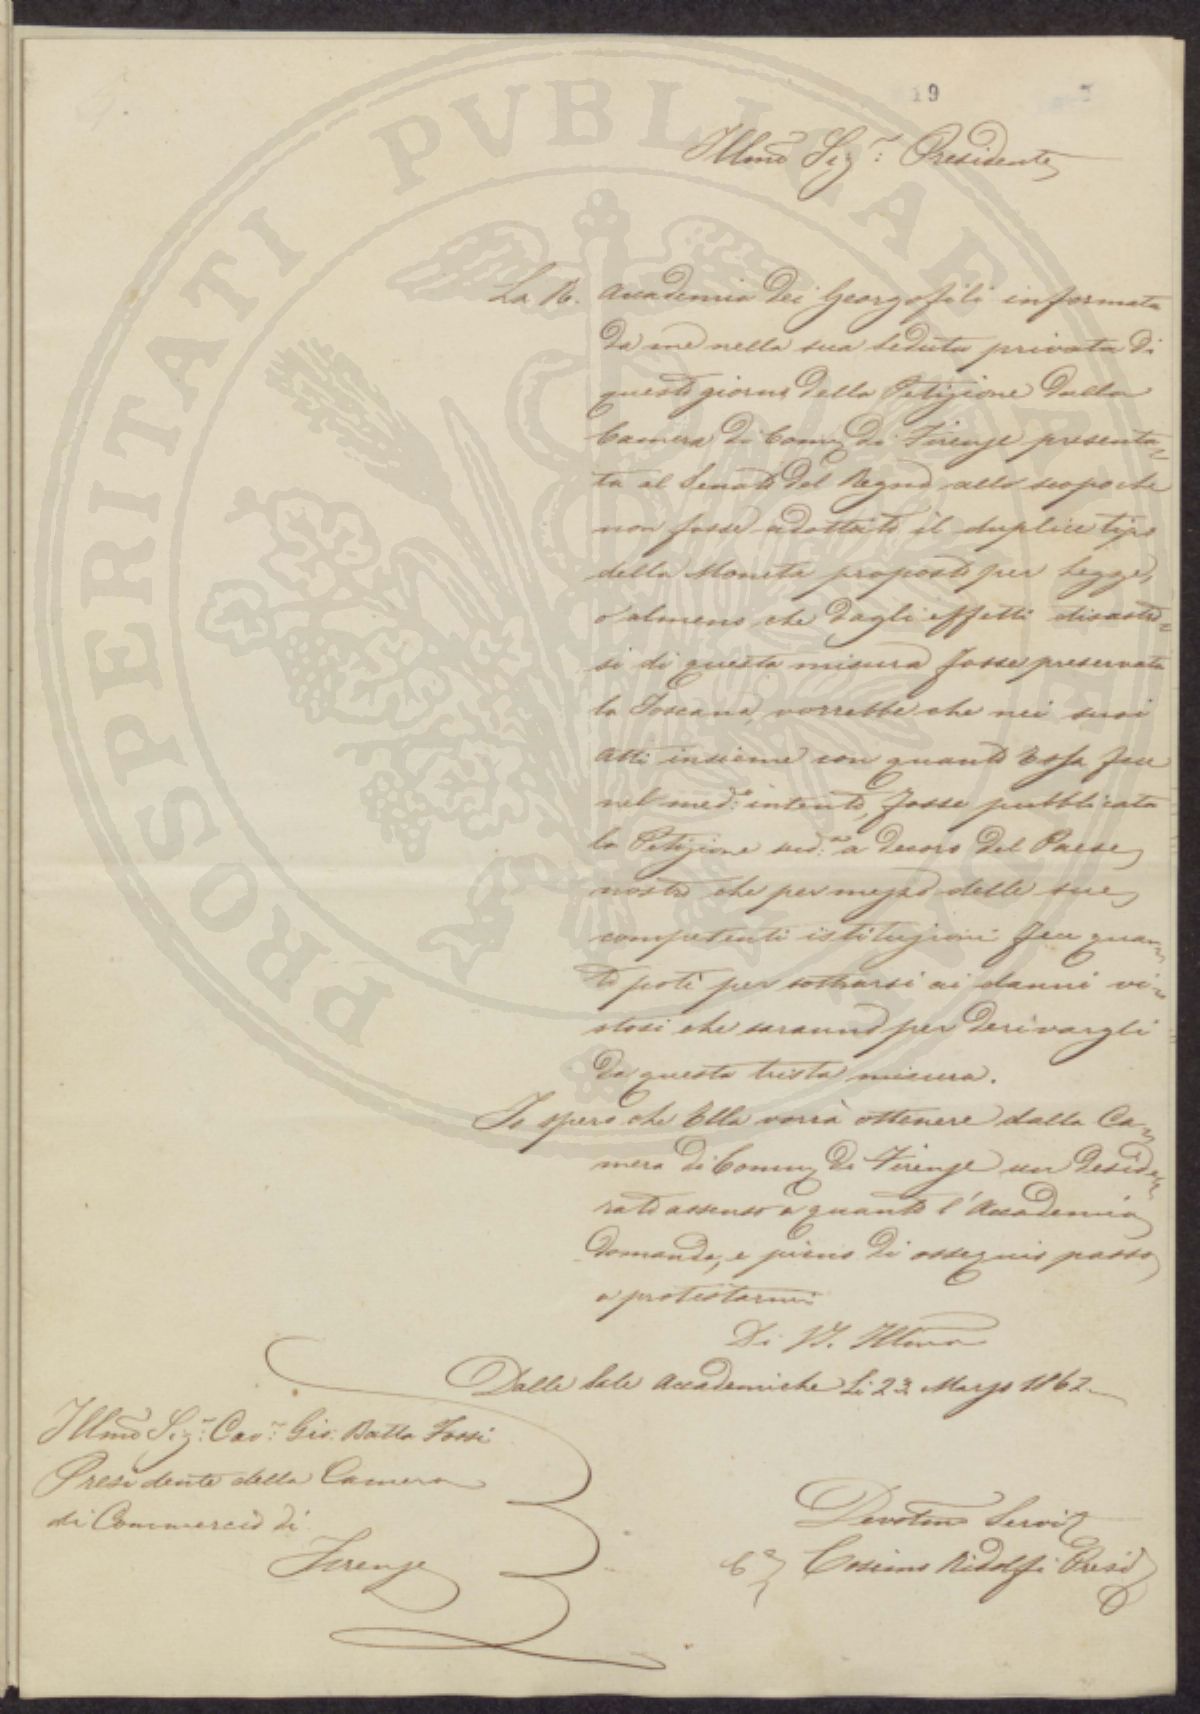 19
Illmo Sigr: Presidente
La R. Accademia dei Georgofili informata
da me nella sua seduta privata di
questo giorno della Petizione dalla
Camera di Comm di Firenze presenta=
ta al Senato del Regno allo scopo che
non fosse adottato il duplice tipo
della Moneta proposto per Legge,
o almeno che dagli effetti disastro=
si di questa misura fosse preservata
la Toscana, vorrebbe che nei suoi
Atti insieme con quanto Essa fece
nel med:o intento, fosse pubblicata
la Petizione sud:a a decoro del Paese
nostro che per mezzo delle sue
competenti istituzioni fece quan=
to potè per sottrarsi ai danni vi=
stosi che saranno per derivargli
da questa trista misura.
Io spero che Ella vorrà ottenere dalla Ca=
mera di Comm di Firenze un deside=
rato assenso a quanto l'Accademia
domanda, e pieno di ossequio passo
a protestarmi
Di V.S. Illma
Dalle Sale Accademiche Li 23 Marzo 1862
Illmo Sigr: Cavr: Gio. Batta Fossi
Presidente della Camera
di Commercio di
Firenze
Devotmo Servit
Cosimo Ridolfi Presid
PROSPERITATI PVBLICAE